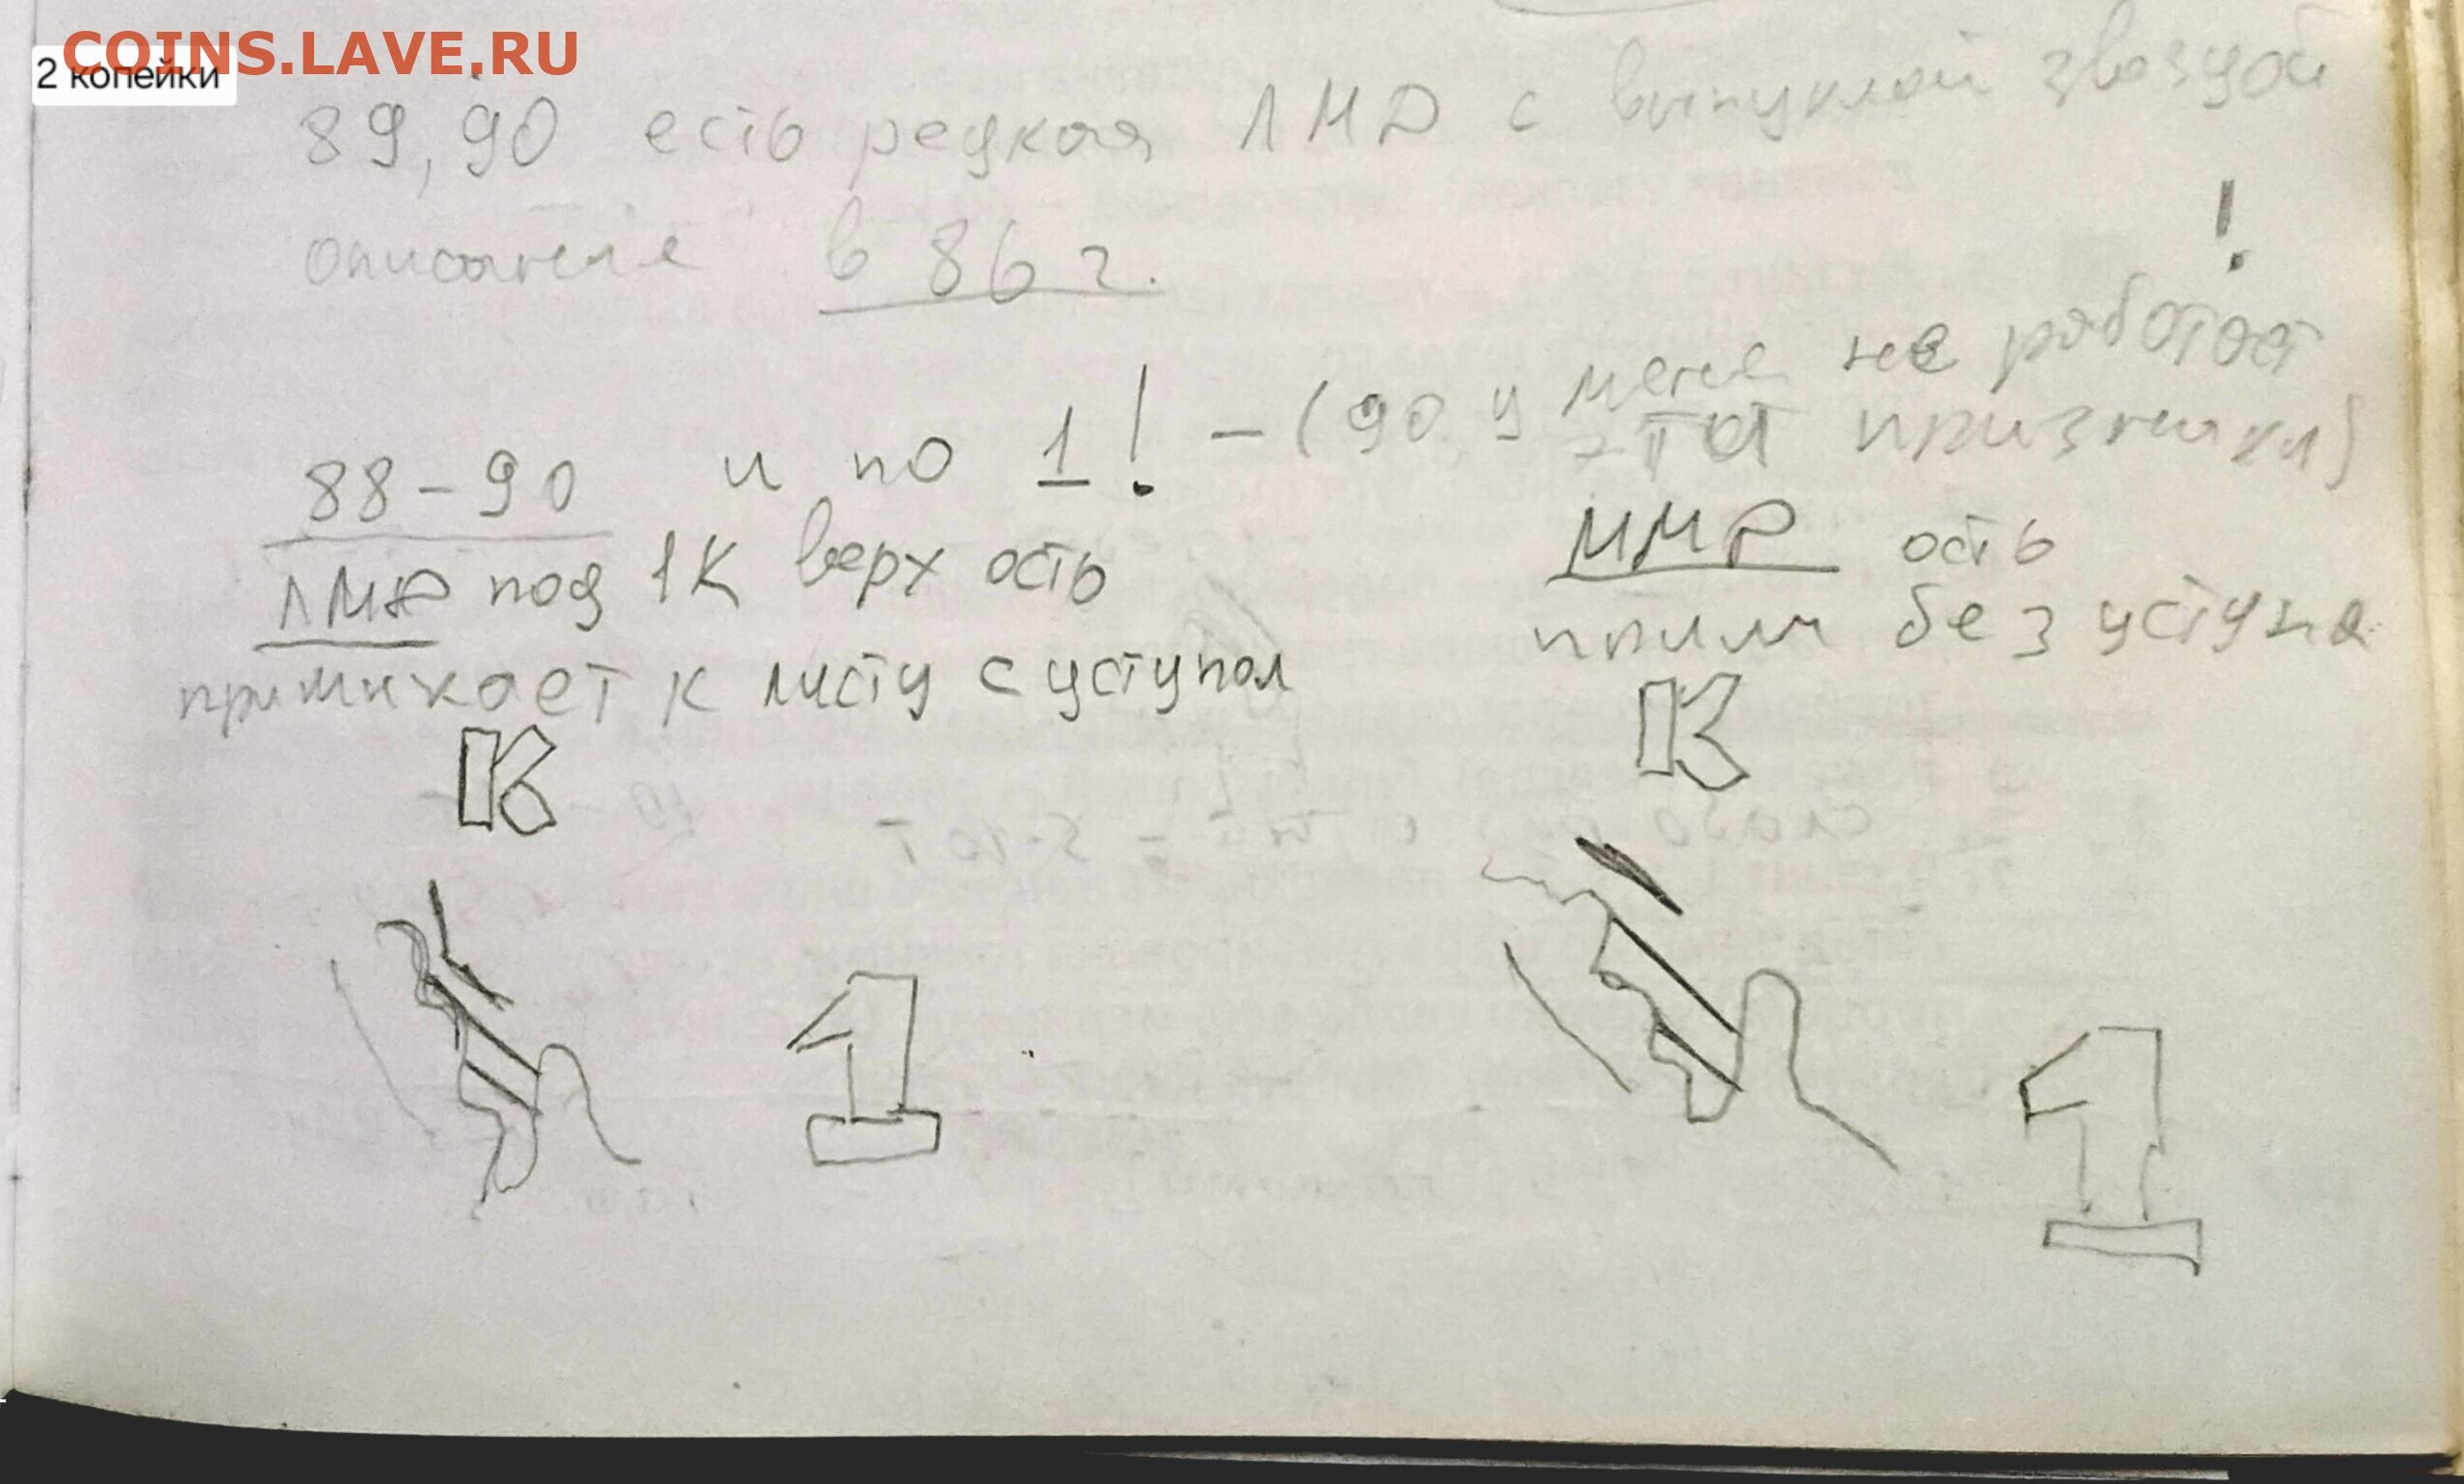 COINS.LAVE.RU
2 копейки
89, 90 есть редкая ЛМД с выпуклой звездой
!
описание в 86 г.
88-90 и по 1! - (90 у меня не работает
эта признаки)
ЛМД под 1К верх ость
примыкает к листу с уступом
ММД ость
прим без уступа
К
К
1
1